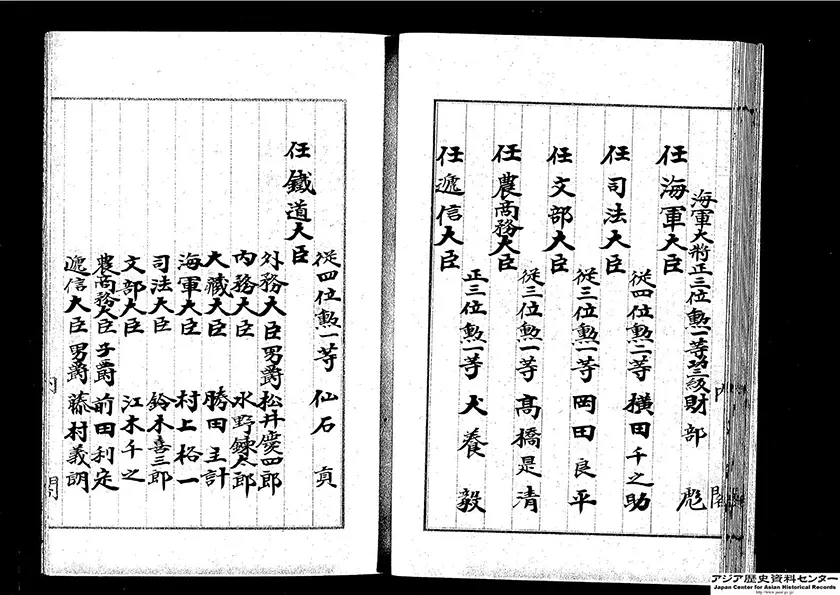 海軍大將正三位勲一等功三級財部 彪
任海軍大臣
從四位勲二等横田千之助
任司法大臣
從三位勲一等岡田良平
任文部大臣
從三位勲一等高橋是清
任農商務大臣
正三位勲一等犬養 毅
任遞信大臣
內閣
從四位勲一等仙石 貢
任鐵道大臣
外務大臣男爵松井慶四郎
内務大臣 水野錬太郎
大藏大臣 勝田主計
海軍大臣 村上格一
司法大臣 鈴木喜三郎
文部大臣 江木千之
農商務大臣子爵前田利定
遞信大臣男爵藤村義朗
アジア歴史資料センター
Japan Center for Asian Historical Records
http://www.jacar.go.jp/